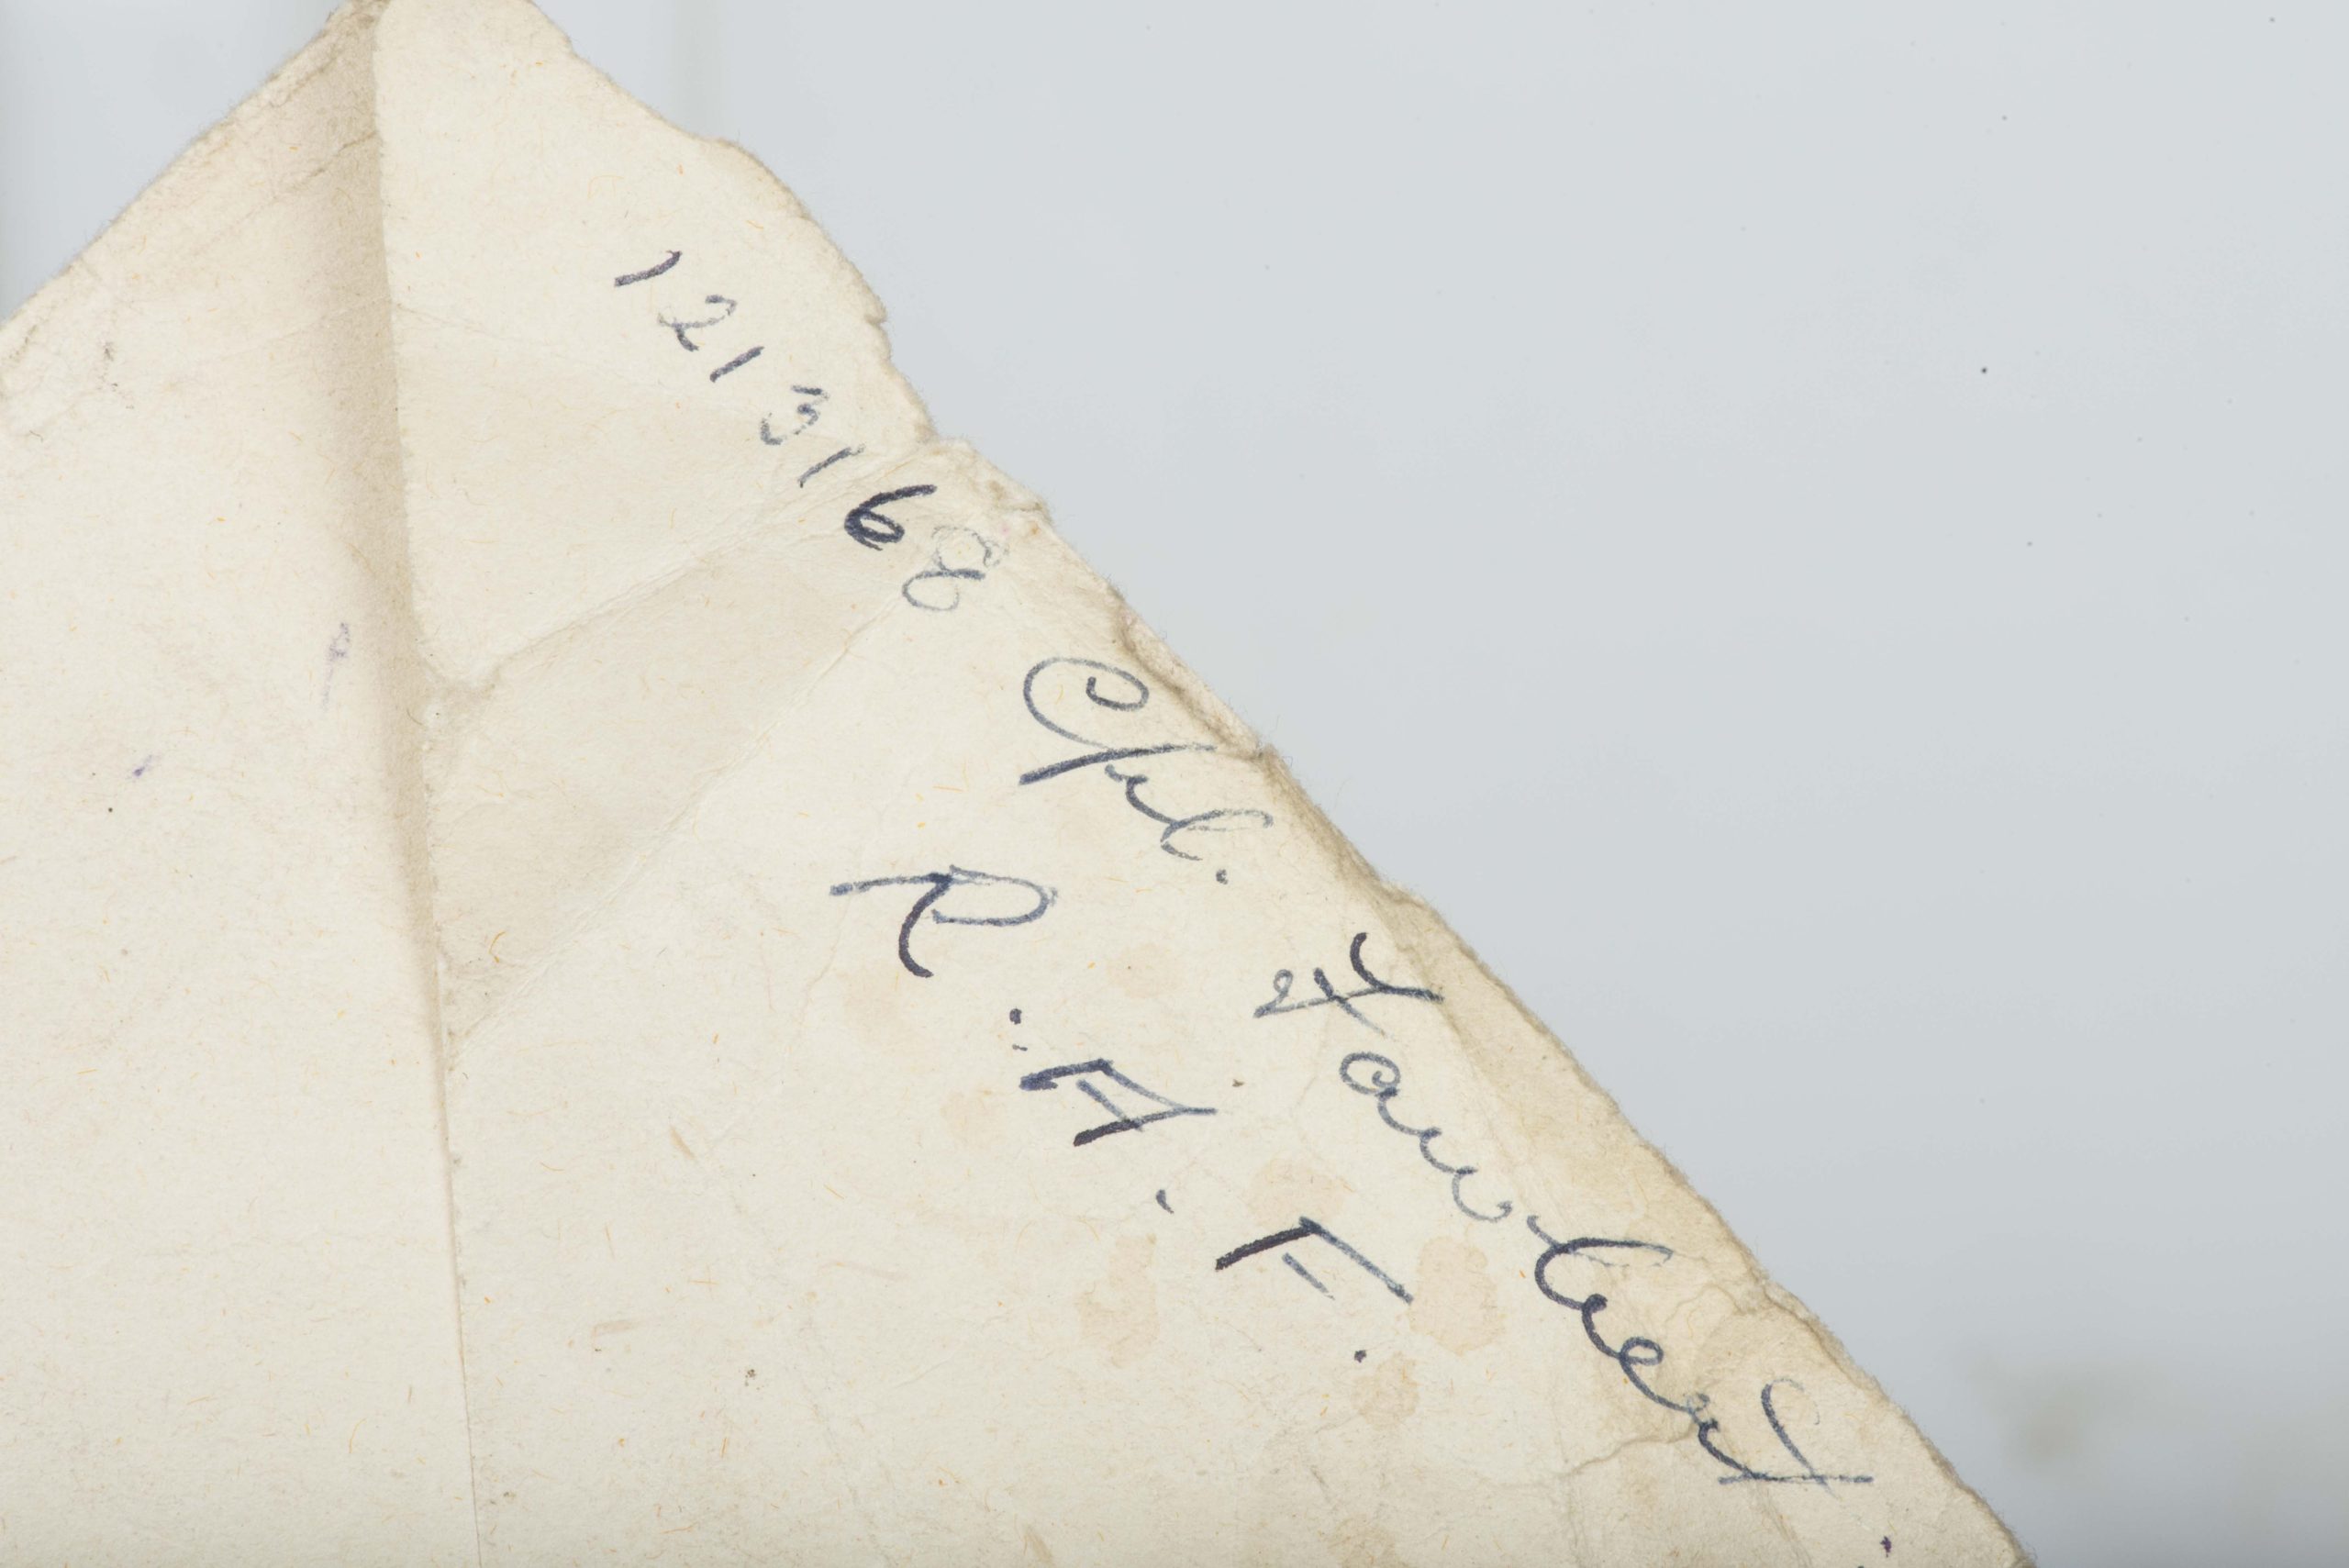 1213168 Cpl. Fawcett.
R.A.F.